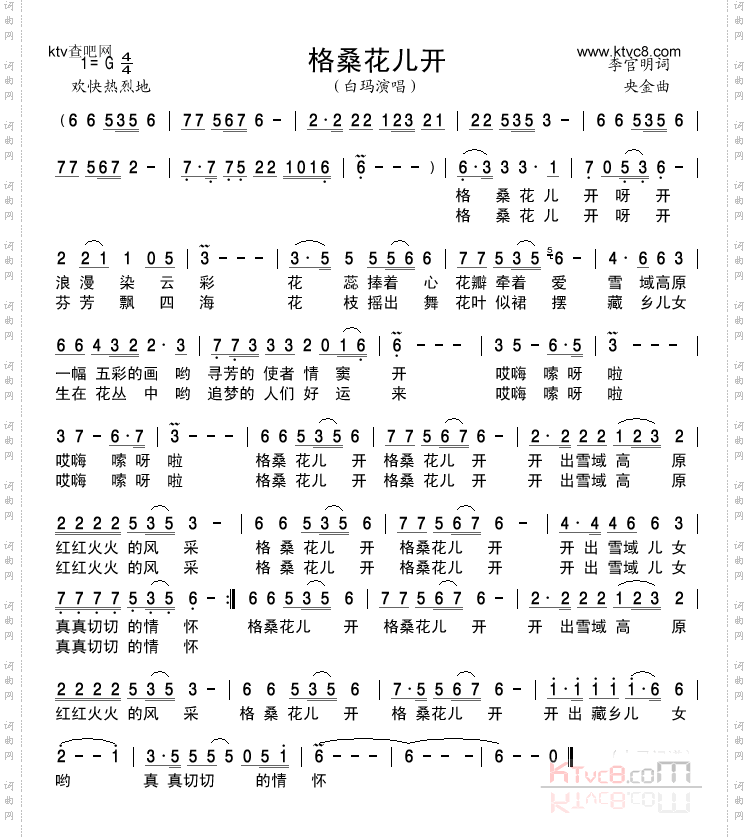 ktv查吧网
格桑花儿开
www.ktvc8.com
1= G 4/4
李官明词
欢快热烈地
(白玛演唱)
央金曲
( 6 6 535 6 | 77 567 6 - | 2·2 22 123 21 | 22 535 3 - | 6 6 535 6
77 567 2 - | 7·7 75 22 1016 | 6 - - - ) | 6·3 3 3·1 | 7 053 6·
格 桑 花 儿 开 呀 开
格 桑 花 儿 开 呀 开
2 21 1 05 | 3 - - - | 3·5 5 5 5 6 6 | 77 535 56 - | 4·663
浪 漫 染 云 彩 花 蕊捧着 心 花瓣牵着 爱 雪 域高原
芬 芳 飘 四 海 花 枝摇出 舞 花叶似裙 摆 藏 乡儿女
66 432 2·3 | 773 332 016 | 6 - - - | 35 - 6·5 | 3 - - -
一幅 五彩的画 哟 寻芳的 使者 情 窦 开 哎嗨 嗦呀 啦
生在 花丛 中 哟 追梦的 人们 好 运 来 哎嗨 嗦呀 啦
37 - 6·7 | 3 - - - | 66 535 6 | 77567 6 - | 2·222 123 2 |
哎嗨 嗦呀 啦 格桑 花儿 开 格桑花儿 开 开 出雪域 高 原
哎嗨 嗦呀 啦 格桑 花儿 开 格桑花儿 开 开 出雪域 高 原
2222 535 3 - | 66 535 6 | 77567 6 - | 4·4 46 6 3 |
红红火火 的风 采 格 桑 花儿 开 格桑花儿 开 开 出 雪域 儿 女
红红火火 的风 采 格 桑 花儿 开 格桑花儿 开 开 出 雪域 儿 女
7777 535 6 - :‖ 66 535 6 | 77567 6 - | 2·222 123 2
真真切切 的情 怀 格桑花儿 开 格桑花儿 开 开 出雪域 高 原
真真切切 的情 怀
2222 535 3 - | 66 535 6 | 7·7 567 6 - | 1·1 11 1·6 6 |
红红火火 的风 采 格 桑 花儿 开 格 桑花儿 开 开 出 藏乡儿 女
2 - - 1 | 3·5 55 5 051 | 6 - - - | 6 - - - | 6 - - 0 ‖
哟 真 真切切 的情 怀
KTvc8.com
词曲网